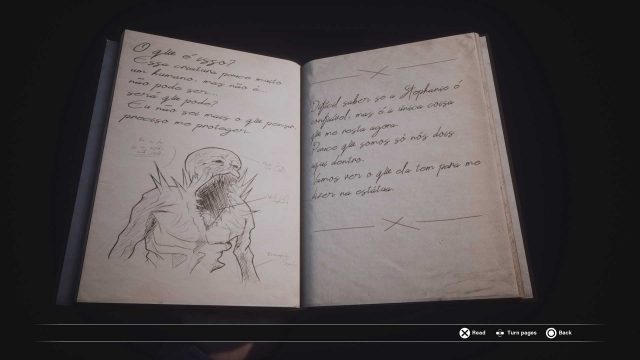 O que é isso?
Essa criatura parece muito
um humano, mas não é...
não pode ser...
será que pode?
Eu não sei mais o que pensar,
preciso me proteger.
Difícil saber se a Stephanie é
confiável, mas é a única coisa
que me resta agora.
Parece que somos só nós dois
aqui dentro.
Vamos ver o que ela tem para me
dizer na estátua.
Read
Turn pages
Back